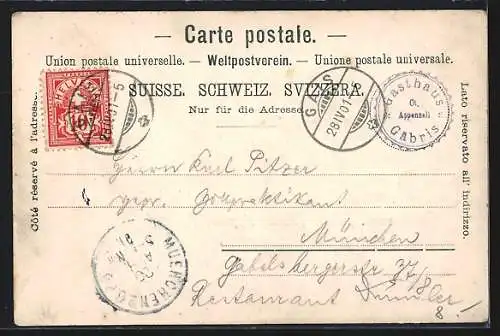 — Carte postale. —
Union postale universelle. — Weltpostverein. — Unione postale universale.
SUISSE. SCHWEIZ. SVIZZERA.
Nur für die Adresse.
Côté réservé à l'adresse.
Lato riservato all' indirizzo.
HELVETIA
10
28 IV 01 - 5
GAIS
28 IV 01
Gasthaus
Ct.
Appenzell
Gäbris
Herrn Karl Pitzer
gepr.
München
Gabelsbergerstr 77/8
Restaurant
8.-
MUENCHEN